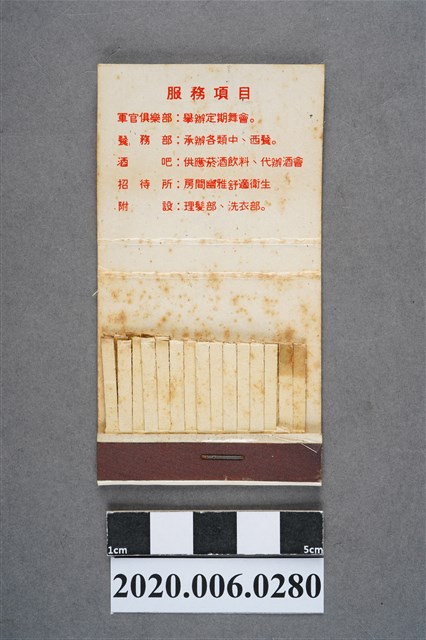 服務項目
軍官俱樂部：舉辦定期舞會。
餐務部：承辦各類中、西餐。
酒吧：供應菸酒飲料、代辦酒會
招待所：房間幽雅舒適衛生
附設：理髮部、洗衣部。
1cm 5cm
2020.006.0280